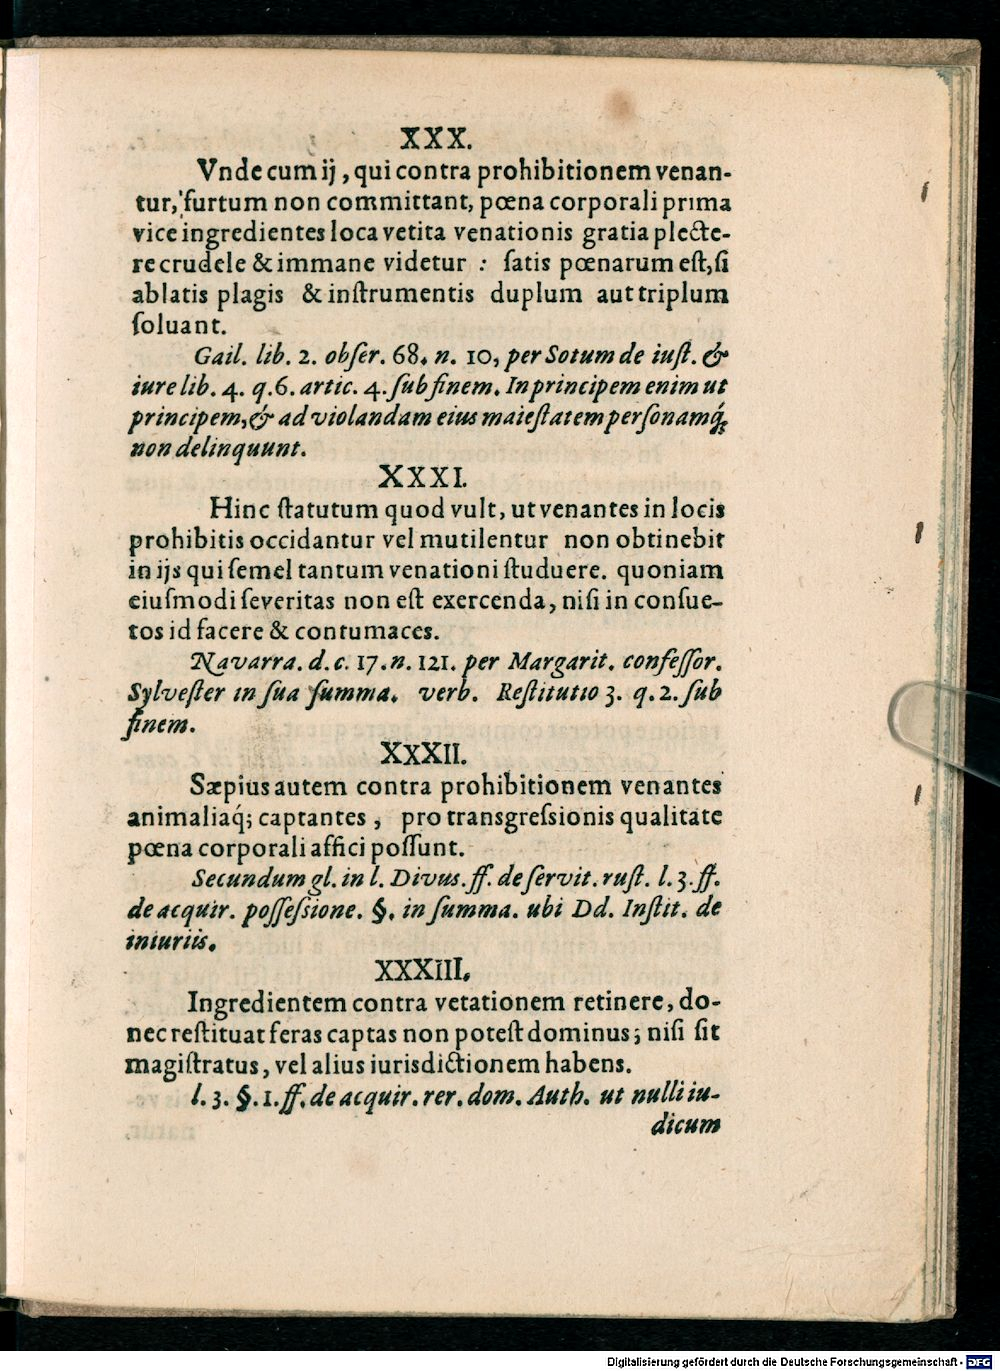 XXX.
Vnde cum ij, qui contra prohibitionem venan-
tur, furtum non committant, pœna corporali prima
vice ingredientes loca vetita venationis gratia plecte-
re crudele & immane videtur : ſatis pœnarum eſt, ſi
ablatis plagis & inſtrumentis duplum aut triplum
ſoluant.
Gail. lib. 2. obſer. 68. n. 10, per Sotum de iuſt. &
iure lib. 4. q. 6. artic. 4. ſub finem. In principem enim ut
principem, & ad violandam eius maieſtatem perſonamq́;
non delinquunt.
XXXI.
Hinc ſtatutum quod vult, ut venantes in locis
prohibitis occidantur vel mutilentur non obtinebit
in ijs qui ſemel tantum venationi ſtuduere. quoniam
eiuſmodi ſeveritas non eſt exercenda, niſi in conſue-
tos id facere & contumaces.
Navarra. d. c. 17. n. 121. per Margarit. confeſſor.
Sylveſter in ſua ſumma. verb. Reſtitutio 3. q. 2. ſub
finem.
XXXII.
Sæpius autem contra prohibitionem venantes
animaliaq́; captantes, pro transgreſsionis qualitate
pœna corporali affici poſſunt.
Secundum gl. in l. Divus. ff. de ſervit. ruſt. l. 3. ff.
de acquir. poſſeſsione. §. in ſumma. ubi Dd. Inſtit. de
iniuriis.
XXXIII.
Ingredientem contra vetationem retinere, do-
nec reſtituat feras captas non poteſt dominus; niſi ſit
magiſtratus, vel alius iurisdictionem habens.
l. 3. §. 1. ff. de acquir. rer. dom. Auth. ut nulli iu-
dicum
Digitalisierung gefördert durch die Deutsche Forschungsgemeinschaft - DFG